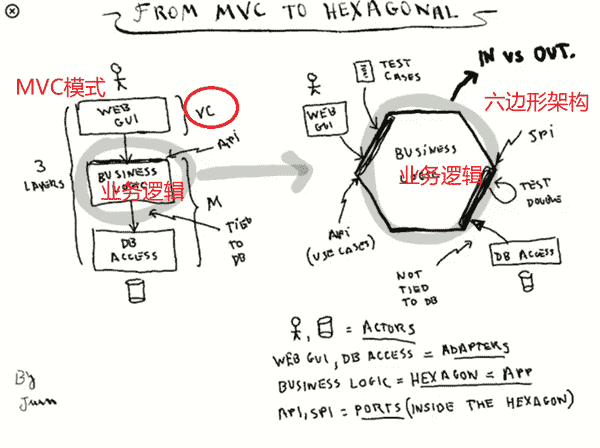 FROM MVC TO HEXAGONAL
MVC模式
WEB
GUI
VC
API
3
LAYERS
BUSINESS
业务逻辑
M
TIED
TO
DB
DB
ACCESS
TEST
CASES
IN VS OUT.
六边形架构
WEB
GUI
BUSINESS
业务逻辑
SPI
TEST
DOUBLE
API
(USE CASES)
NOT
TIED
TO DB
DB ACCESS
, = ACTORS
WEB GUI, DB ACCESS = ADAPTERS
BUSINESS LOGIC = HEXAGON = APP
API, SPI = PORTS (INSIDE THE HEXAGON)
By
Juan